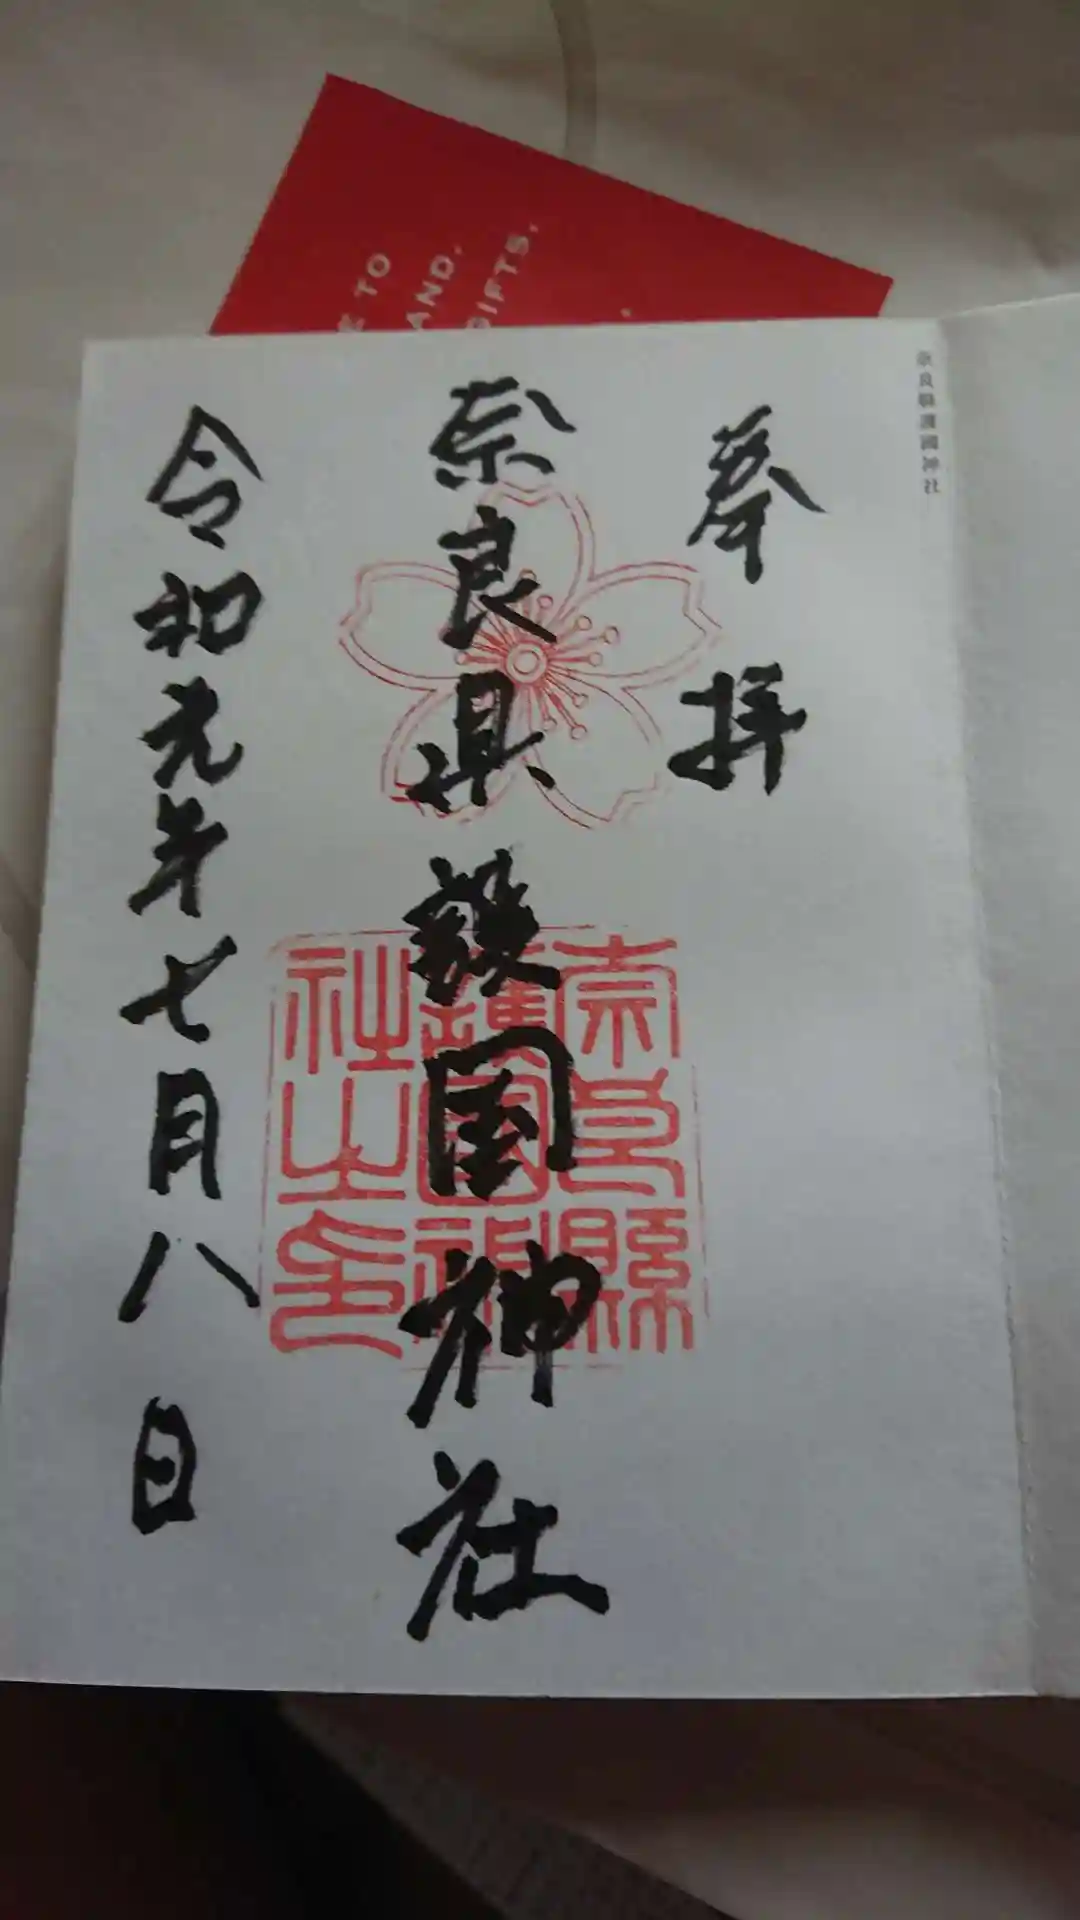 奉拝
奈良県護国神社
令和元年七月八日
奈良縣護國神社之印
奈良縣護國神社
TO
AND,
GIFTS,